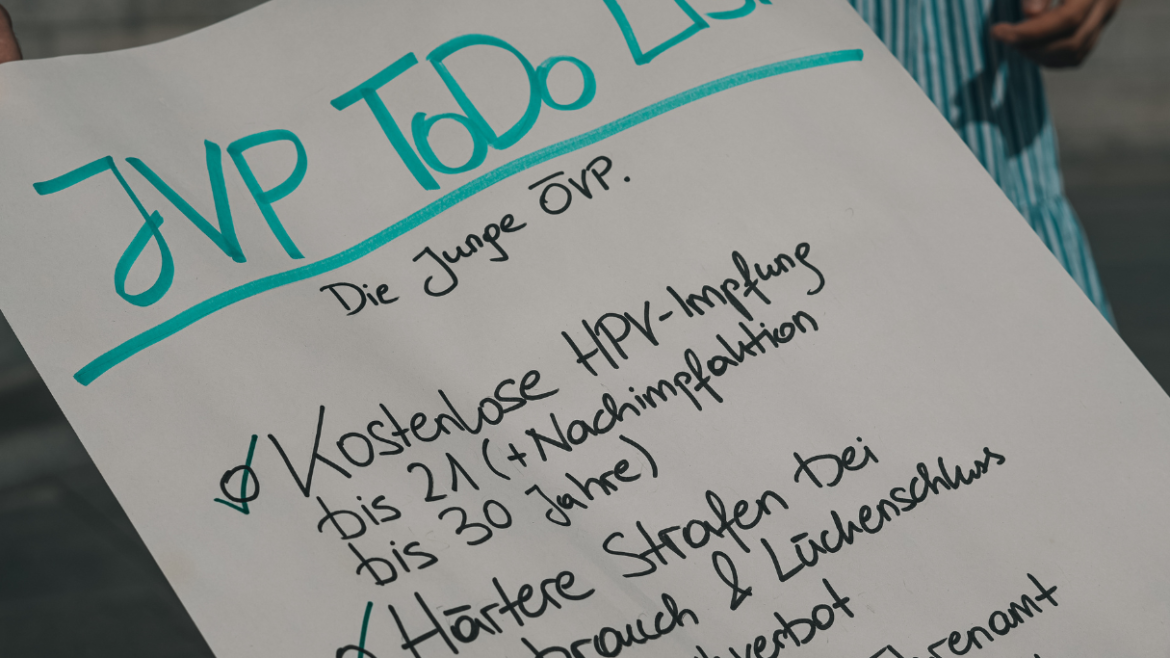 JVP ToDo
Die Junge ÖVP.
Kostenlose HPV-Impfung
bis 21 (+Nachimpfaktion
bis 30 Jahre)
Härtere Strafen bei
& Lückenschluss